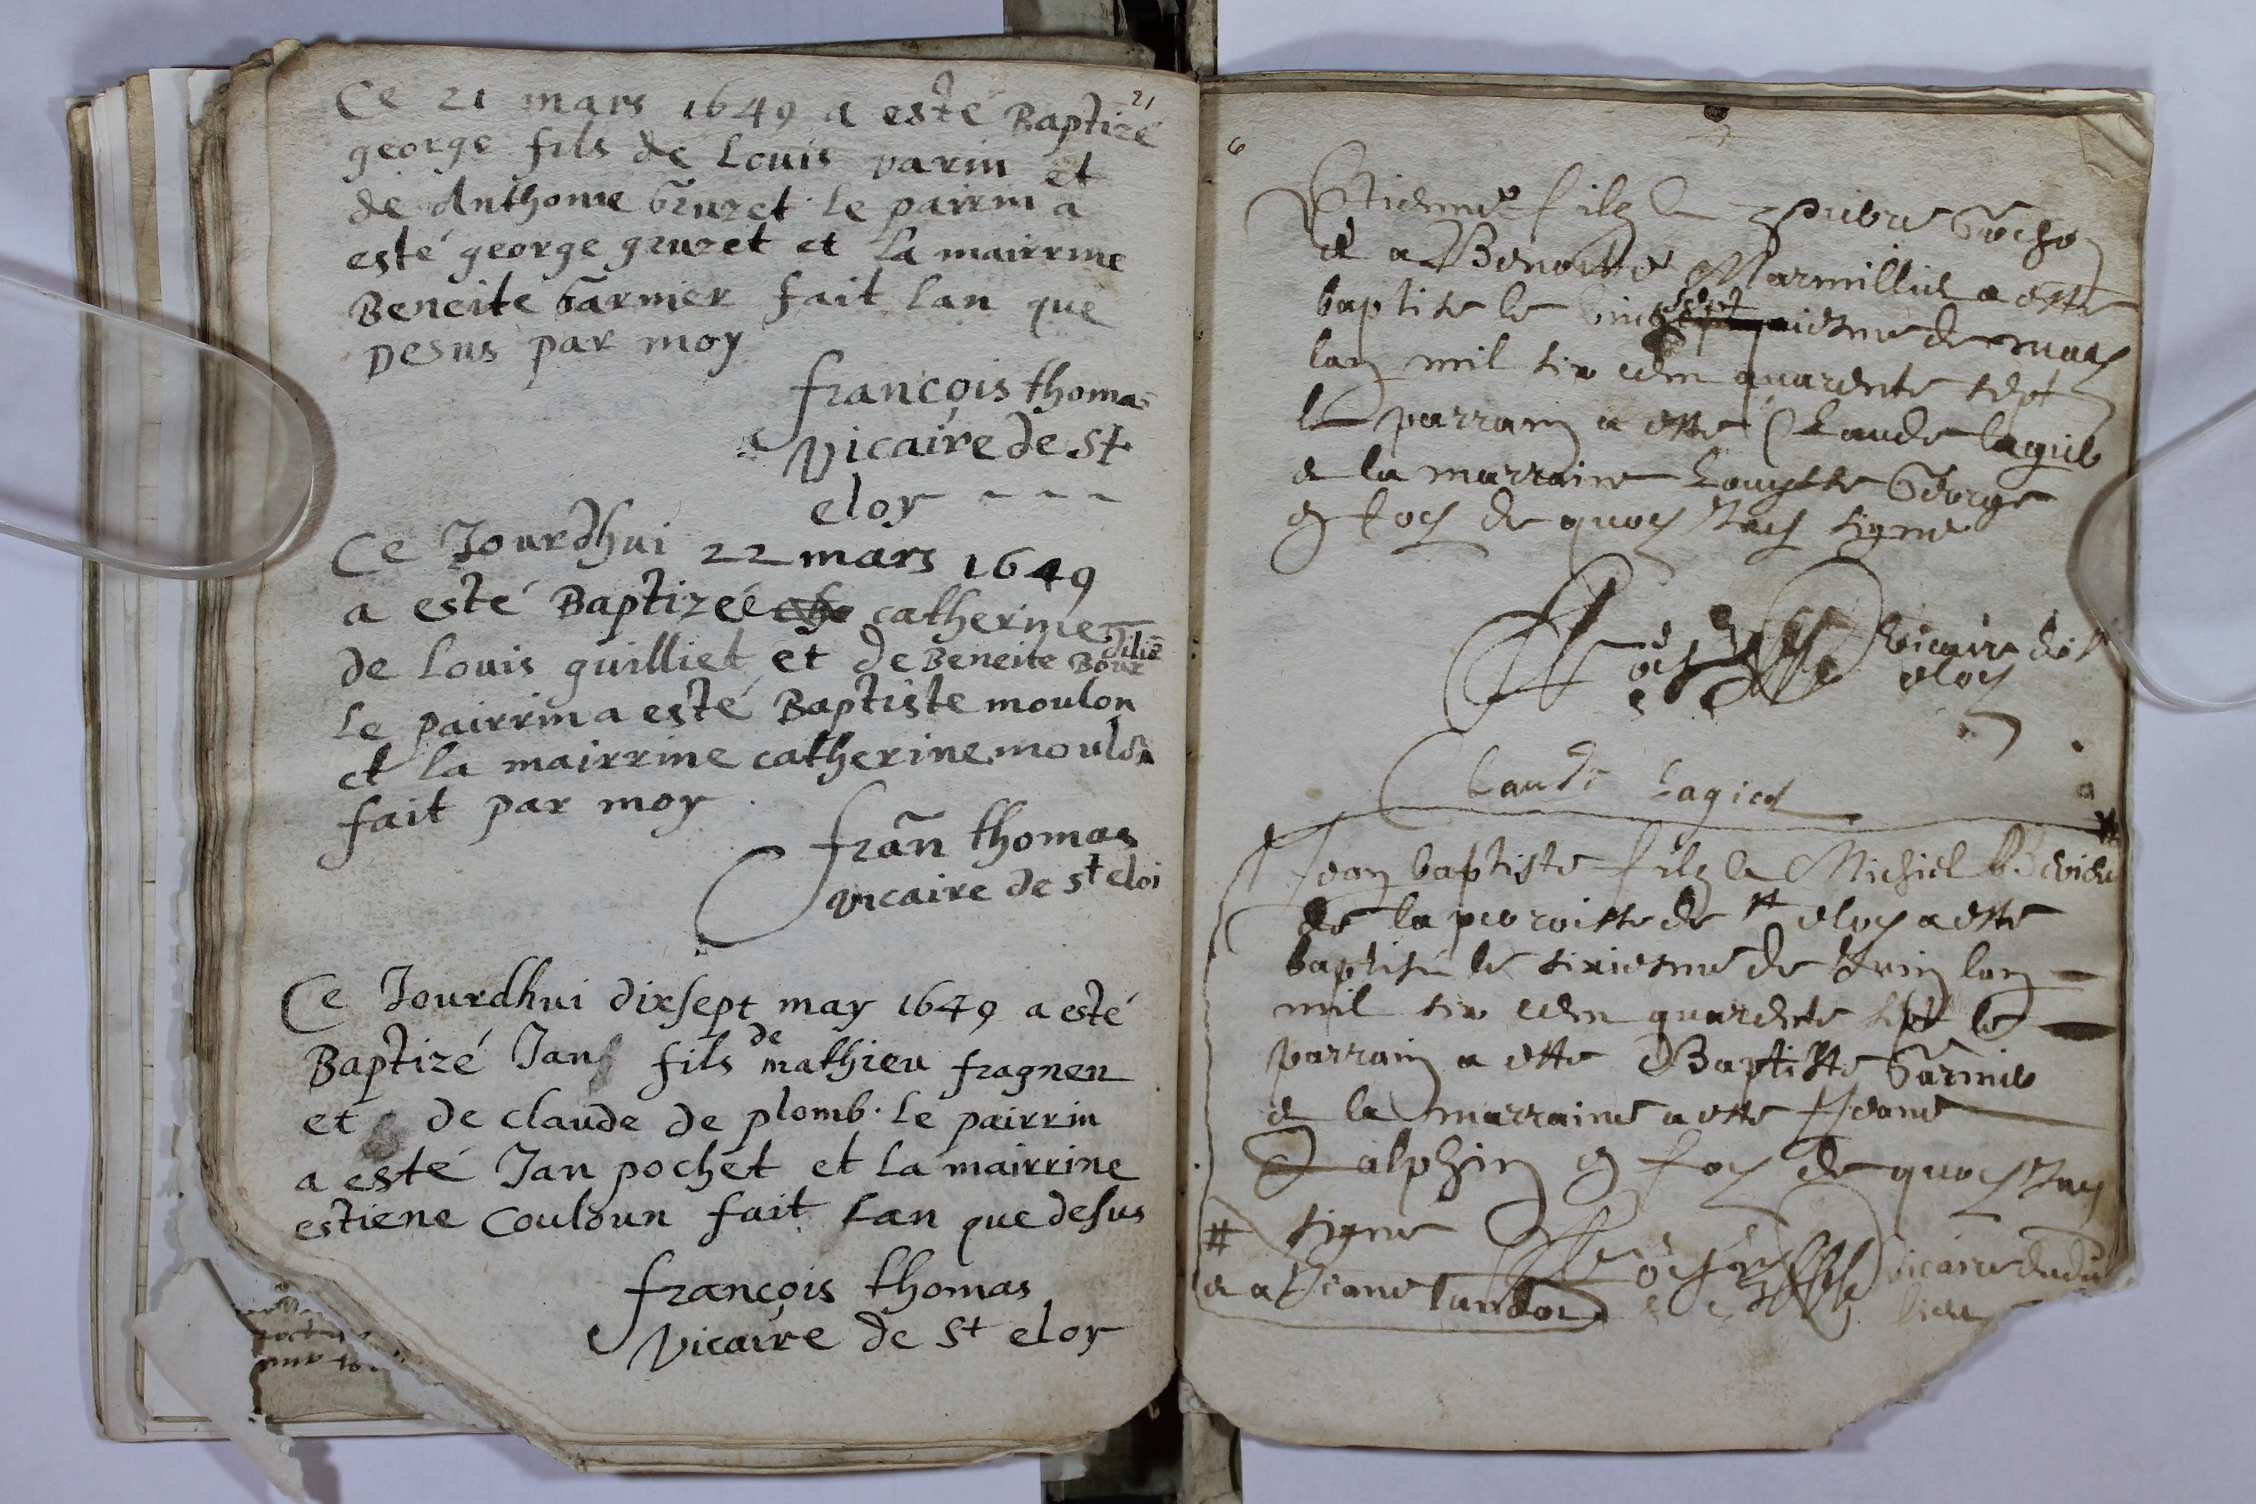 21
Ce 21 mars 1649 a esté Baptizé
george fils de Louis varin et
de Anthome Gruzet le pairrin a
esté george gruzet et la mairrine
Beneite Garnier fait lan que
Desus par moy
françois thomas
vicaire de St
eloy
Ce Jourdhui 22 mars 1649
a esté Baptizéé catherine
de Louis guilliet et de Beneite Bour
dilié
Le pairrin a esté Baptiste moulon
et la mairrine catherine moulon
fait par moy
frañ thomas
vicaire de st eloi
Ce Jourdhui dixsept may 1649 a esté
Baptizé Jan fils de mathieu fragneu
et de claude de plomb. Le pairrin
a esté Jan pochet et la mairrine
estiene couloun fait Lan que desus
françois thomas
vicaire de St eloy
6
Etienne filz a
et a Benoite Marmillied a este
baptise le vingt sept iesme de mars
lan mil six cem quarente sept
le parrain a este Claude lagier
et la marraine Louysse George
en foy de quoy Jay signe
vicaire de st
eloy
Claude Lagied
Jean baptiste filz a Michiel
de la parroisse de st eloy a este
baptisé le sixiesme de Juin lan
mil six cem quarente sept le
parrain a este Baptiste Garnier
et la marraine a este Jeane
Dalphin en foy de quoy Jay
signe
vicaire dudit
lieu
# et a Jeane